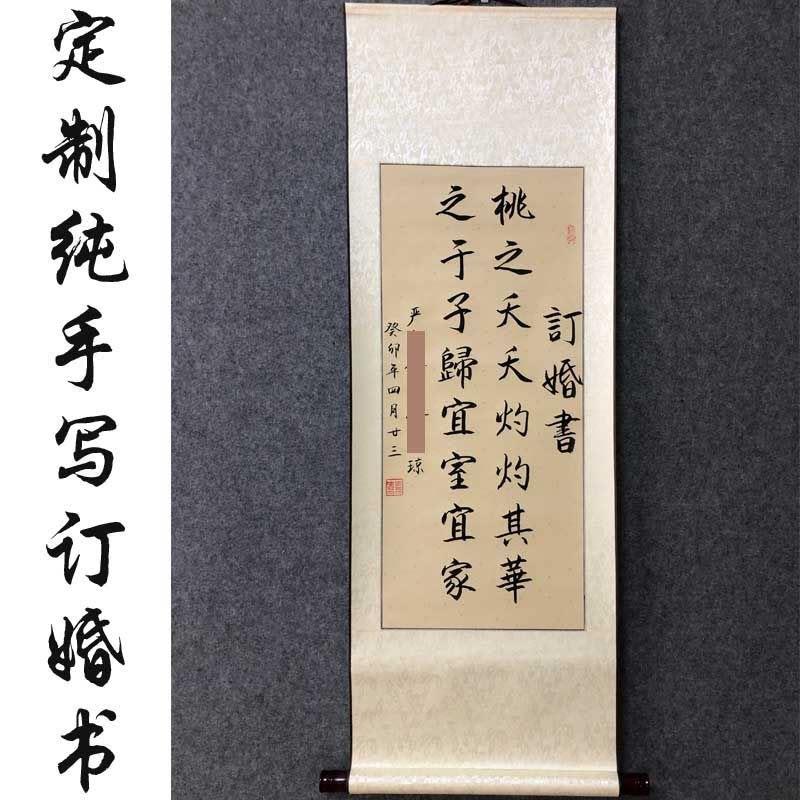 定制纯手写订婚书
訂婚書
桃之夭夭灼灼其華
之于子歸宜室宜家
严 琼
癸卯年四月廿三